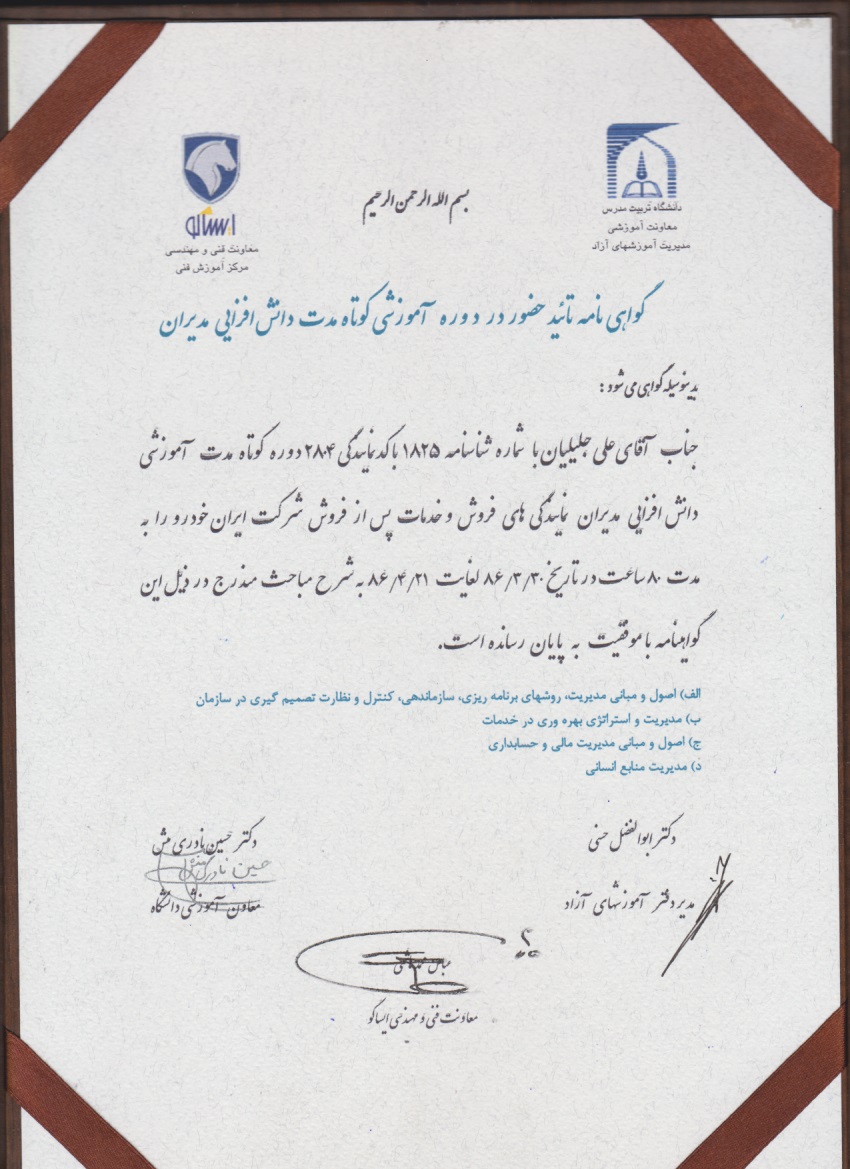 بسم الله الرحمن الرحیم
دانشگاه تربیت مدرس
معاونت آموزشی
مدیریت آموزشهای آزاد
ایساکو
معاونت فنی و مهندسی
مرکز آموزش فنی
گواهی نامه تائید حضور در دوره آموزشی کوتاه مدت دانش افزایی مدیران
بدینوسیله گواهی می شود:
جناب آقای علی جلیلیان با شماره شناسنامه ۱۸۲۵ با کد نمایندگی ۲۸۰۴ دوره کوتاه مدت آموزشی
دانش افزایی مدیران نمایندگی های فروش و خدمات پس از فروش شرکت ایران خودرو را به
مدت ۸۰ ساعت در تاریخ ۸۶/۳/۳۰ لغایت ۸۶/۴/۲۱ به شرح مباحث مندرج در ذیل این
گواهینامه با موفقیت به پایان رسانده است.
الف) اصول و مبانی مدیریت، روشهای برنامه ریزی، سازماندهی، کنترل و نظارت تصمیم گیری در سازمان
ب) مدیریت و استراتژی بهره وری در خدمات
ج) اصول و مبانی مدیریت مالی و حسابداری
د) مدیریت منابع انسانی
دکتر ابوالفضل حسنی
مدیر دفتر آموزشهای آزاد
دکتر حسین نادری منش
حسین نادری منش
معاون آموزشی دانشگاه
معاونت فنی و مهندسی ایساکو